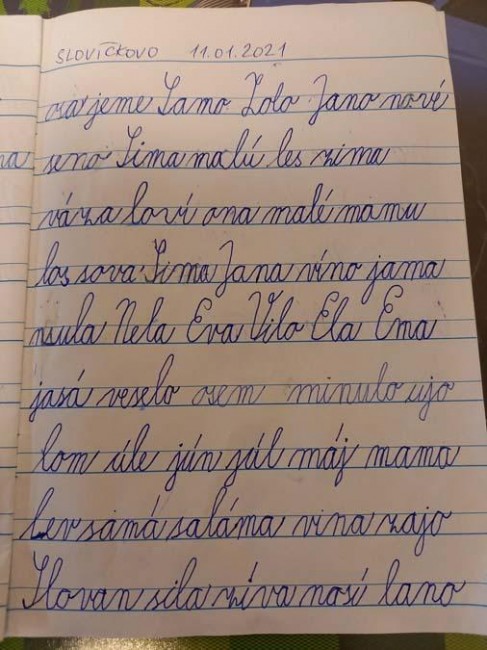 SLOVÍČKOVO 11.01.2021
jeme Samo Lolo Jano nové
seno Sima malú les zima
váza loví ona malé mamu
los sova Sima Jana víno jama
Nela Eva Vilo Ela Ema
jasá veselo osem minulo ujo
lom úle jún júl máj mama
lev samá saláma vina zajo
Slovan sila zíva nosí lano